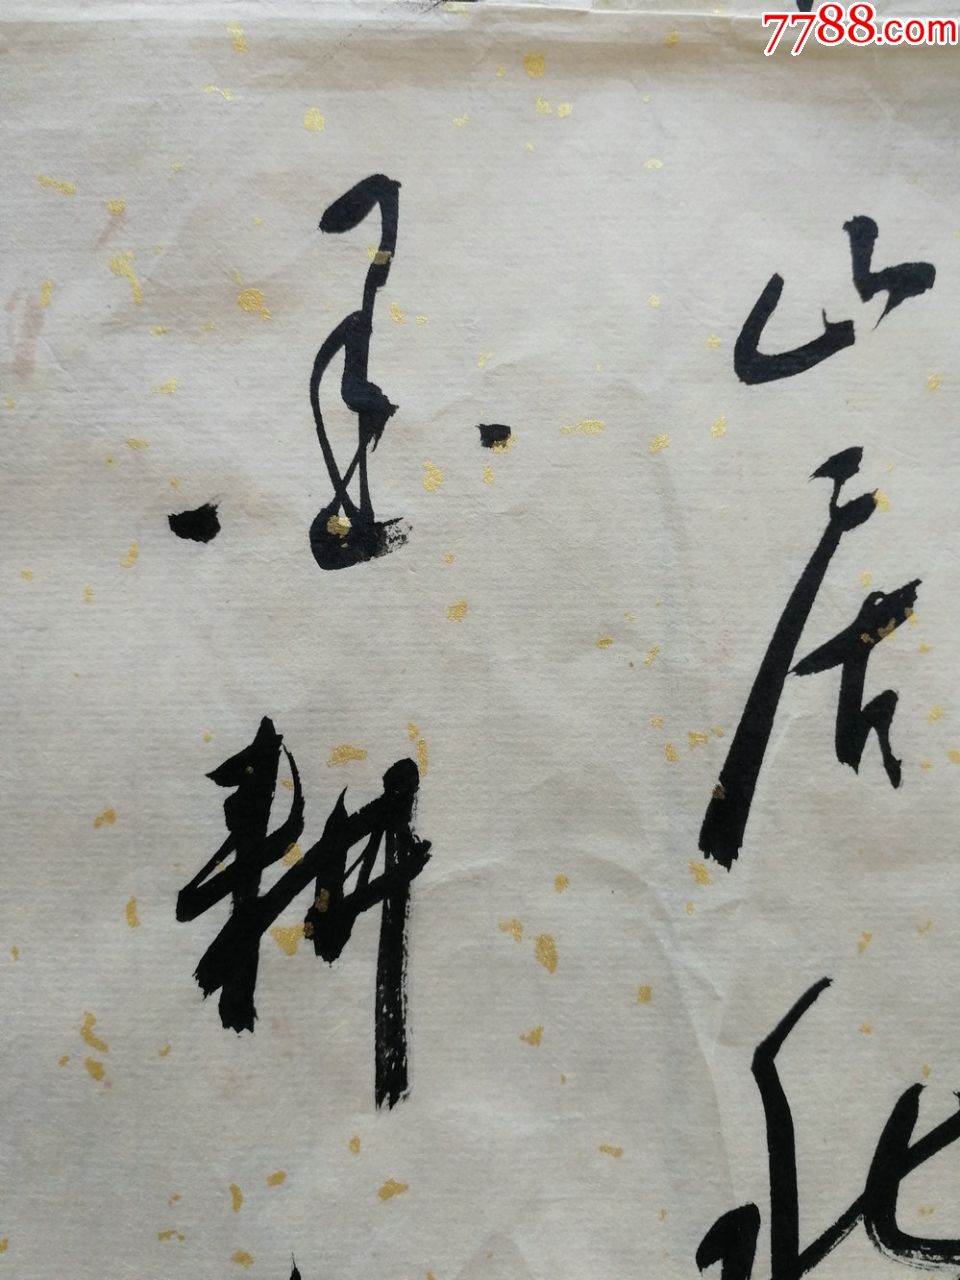 7788.com
山居北
耕